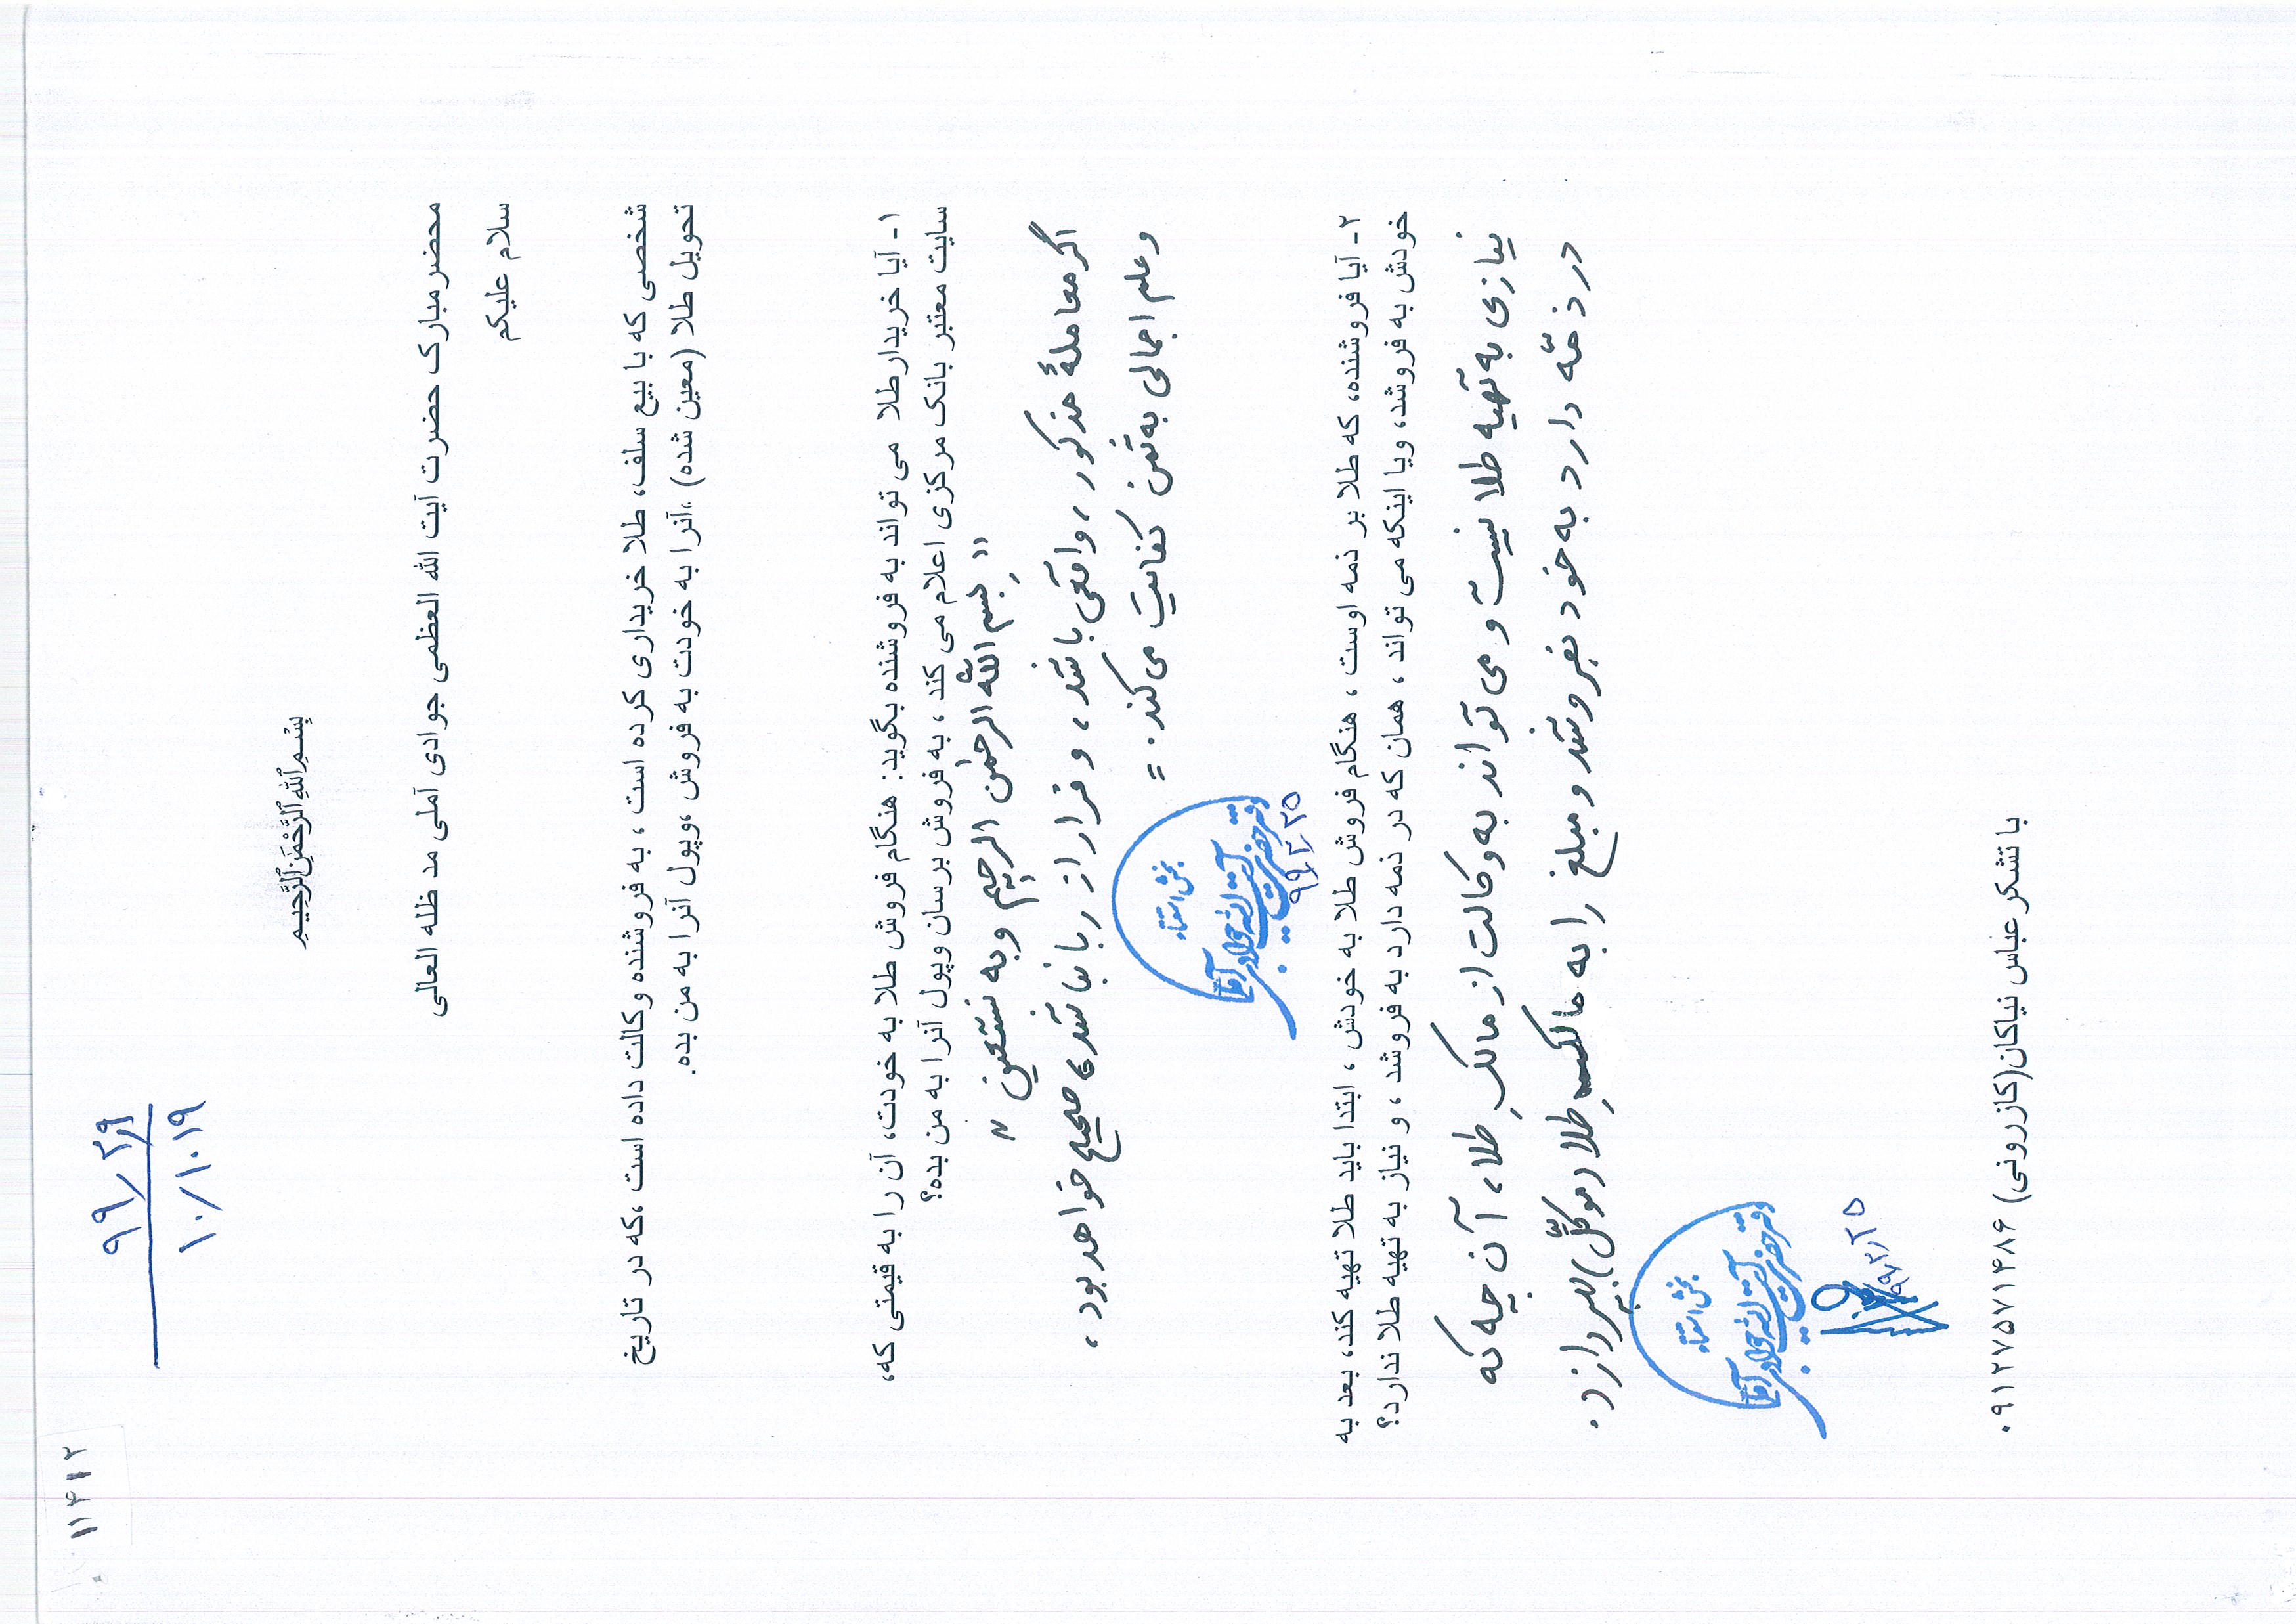 ۱۱۴۱۲
۹۹/۲/۹
۱۰/۱۰۱۹
بِسْمِ اللَّهِ الرَّحْمَنِ الرَّحِيمِ
محضر مبارک حضرت آیت الله العظمی جوادی آملی مد ظله العالی
سلام علیکم
شخصی که با بیع سلف، طلا خریداری کرده است ، به فروشنده وکالت داده است ،که در تاریخ
تحویل طلا (معین شده) ،آنرا به خودت به فروش ،وپول آنرا به من بده.
۱- آیا خریدار طلا می تواند به فروشنده بگوید: هنگام فروش طلا به خودت، آن را به قیمتی که،
سایت معتبر بانک مرکزی اعلام می کند ، به فروش برسان وپول آنرا به من بده؟
" بسم الله الرحمن الرحیم وبه نستعین "
اگر معاملهٔ مذکور، واقعی باشد، و فرار از ربا نباشد، صحیح خواهد بود،
و علم اجمالی به ثمن کفایت می کند. =
بخش استفتاء
دفتر حضرت آیت الله جوادی آملی
۹۹/۲/۲۵
۲- آیا فروشنده، که طلا بر ذمه اوست ، هنگام فروش طلا به خودش ، ابتدا باید طلا تهیه کند، بعد به
خودش به فروشد، ویا اینکه می تواند ، همان که در ذمه دارد به فروشد ، و نیاز به تهیه طلا ندارد؟
نیازی به تهیه طلا نیست و می تواند به وکالت از مالکِ طلا، آن چه که
در ذمّه دارد به خود بفروشد و مبلغ را به مالکِ طلا (موکّل) بپردازد.
بخش استفتاء
دفتر حضرت آیت الله جوادی آملی
۹۹/۲/۲۵
با تشکر عباس نیاکان(کازرونی) ۰۹۱۲۷۵۷۱۴۸۶